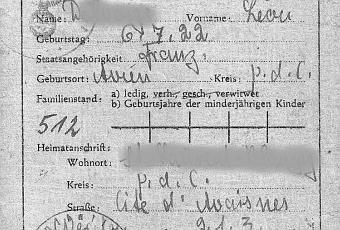 Name: Vorname: Leon
Geburtstag: 6/7.22
Staatsangehörigkeit: franz.
Geburtsort: Avion Kreis: p.d.C.
Familienstand: a) ledig, verh., gesch., verwitwet
b) Geburtsjahre der minderjährigen Kinder
512
Heimatanschrift:
Wohnort:
Kreis: p.d.C.
Straße: Cité d'